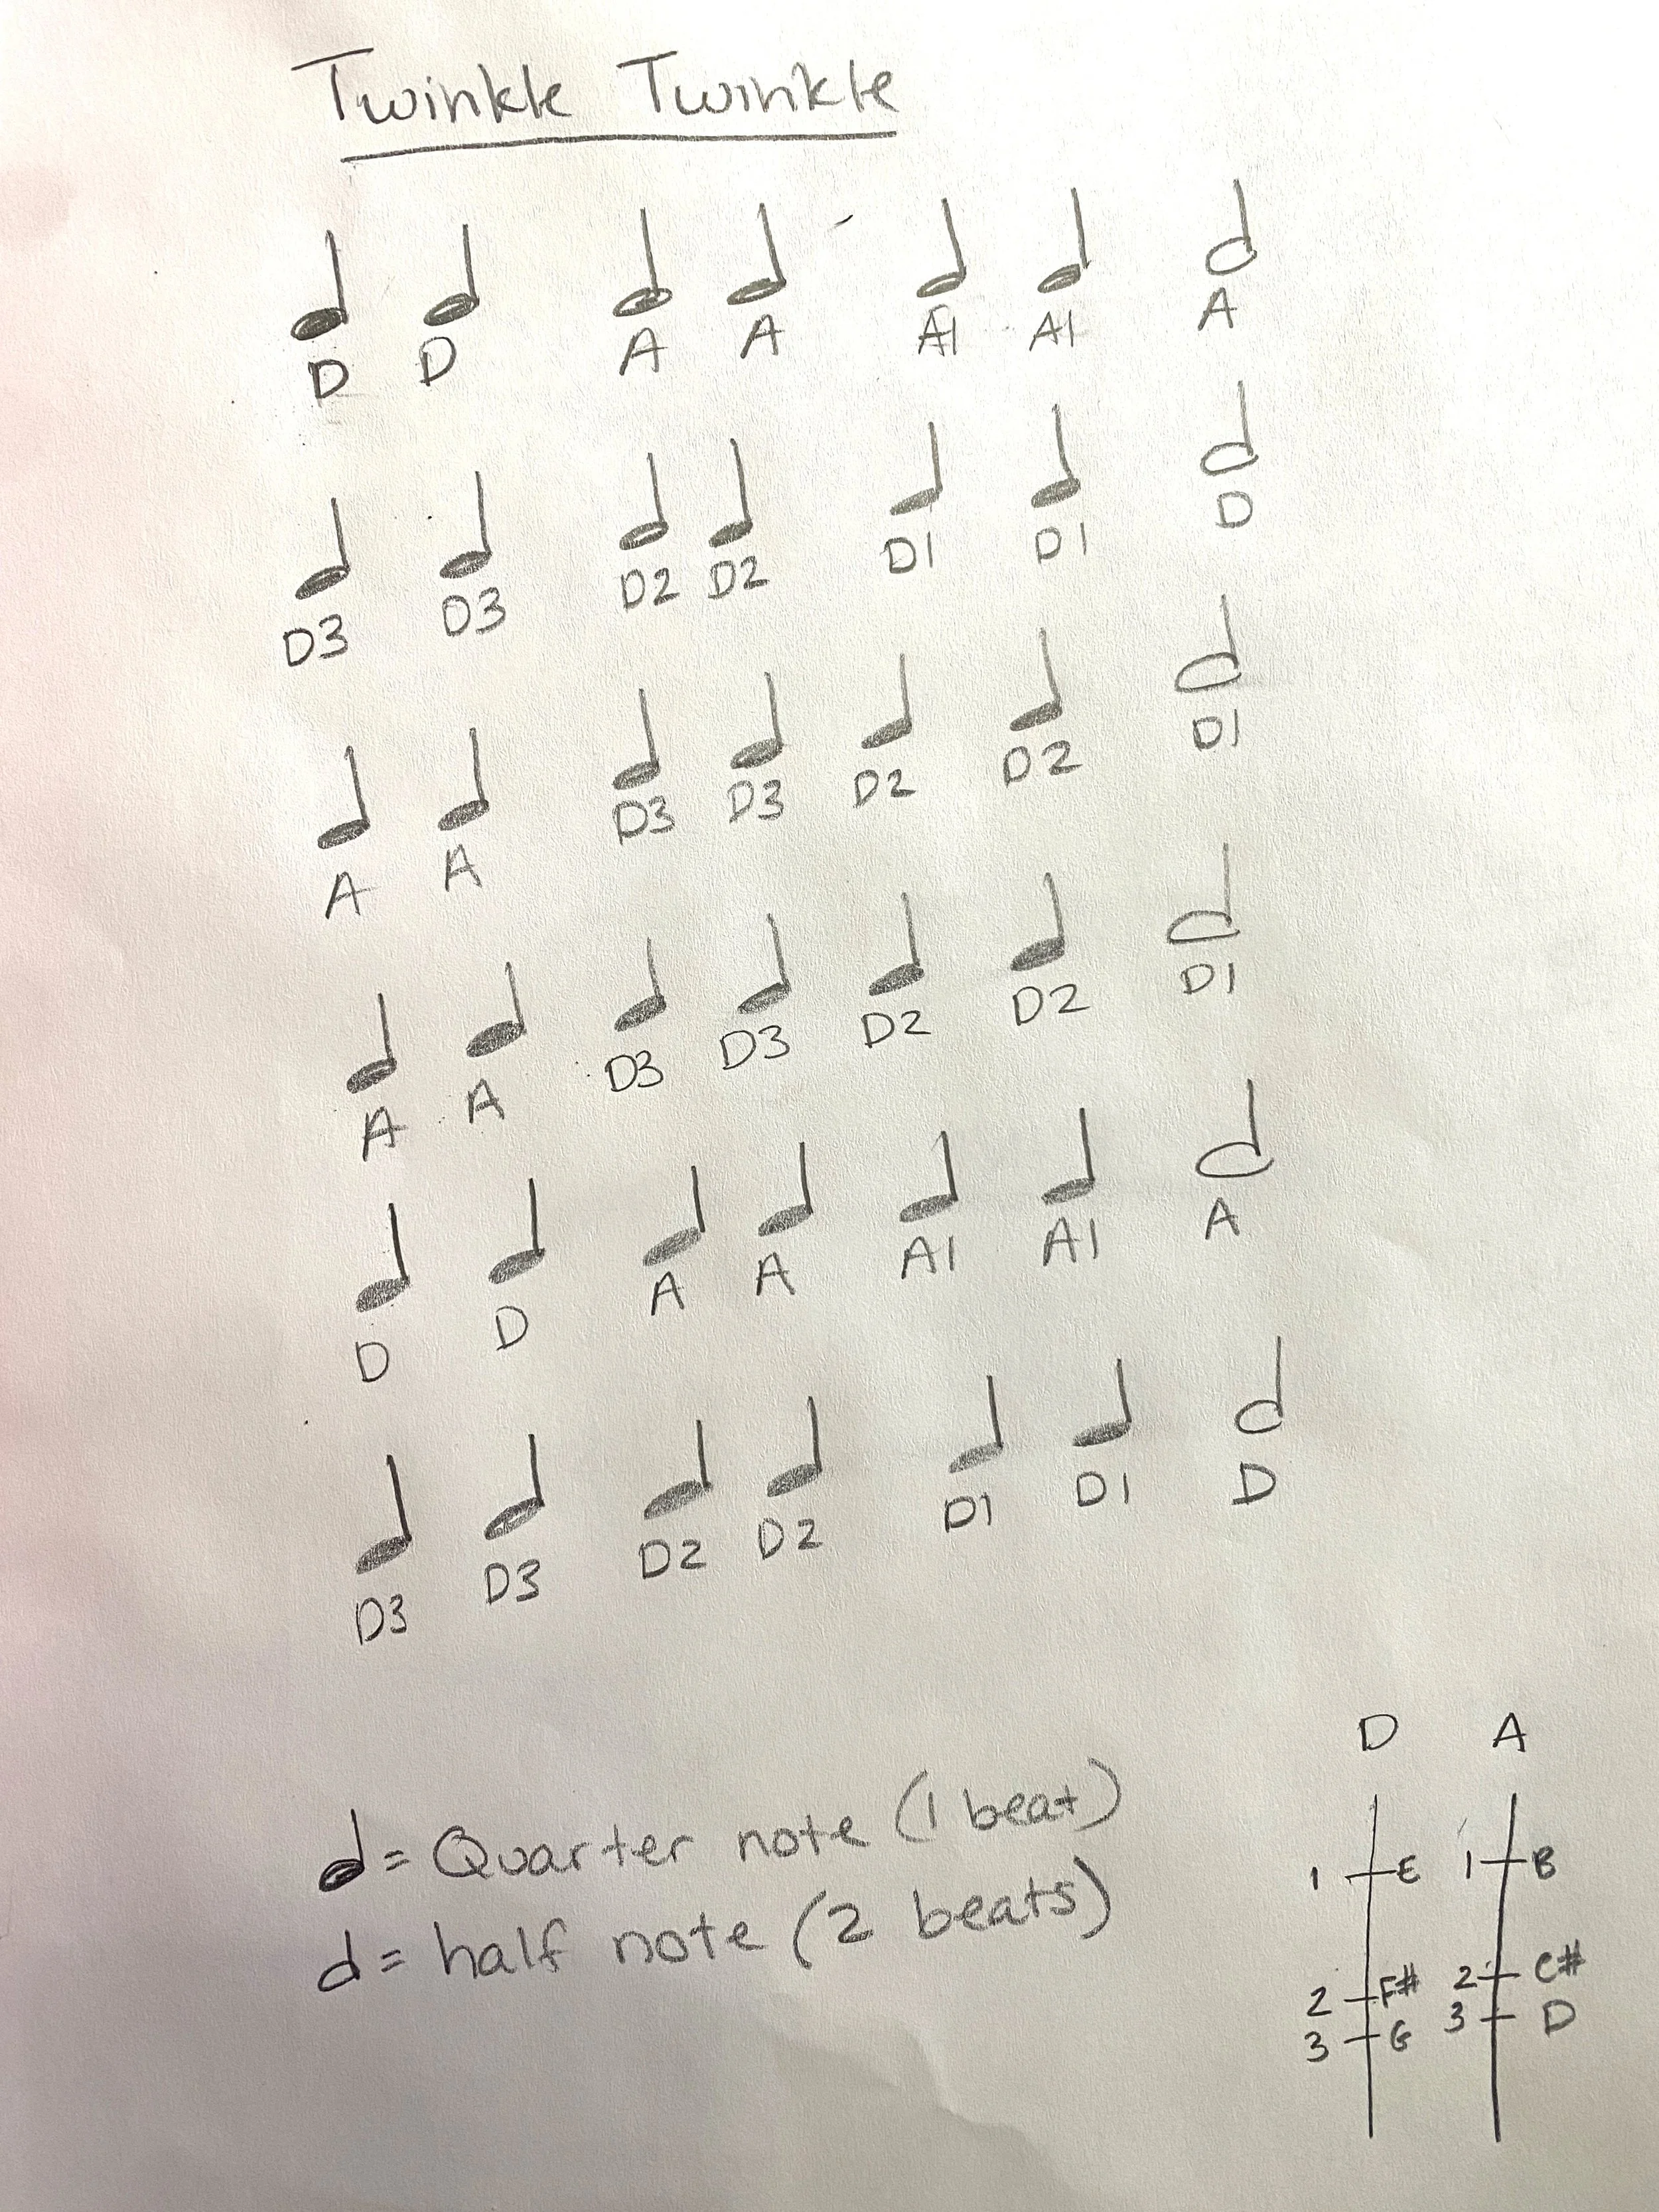 Twinkle Twinkle
D D A A A1 A1 A
D3 D3 D2 D2 D1 D1 D
A A D3 D3 D2 D2 D1
A A D3 D3 D2 D2 D1
D D A A A1 A1 A
D3 D3 D2 D2 D1 D1 D
= Quarter note (1 beat)
= half note (2 beats)
D A
1 E 1 B
2 F# 2 C#
3 G 3 D